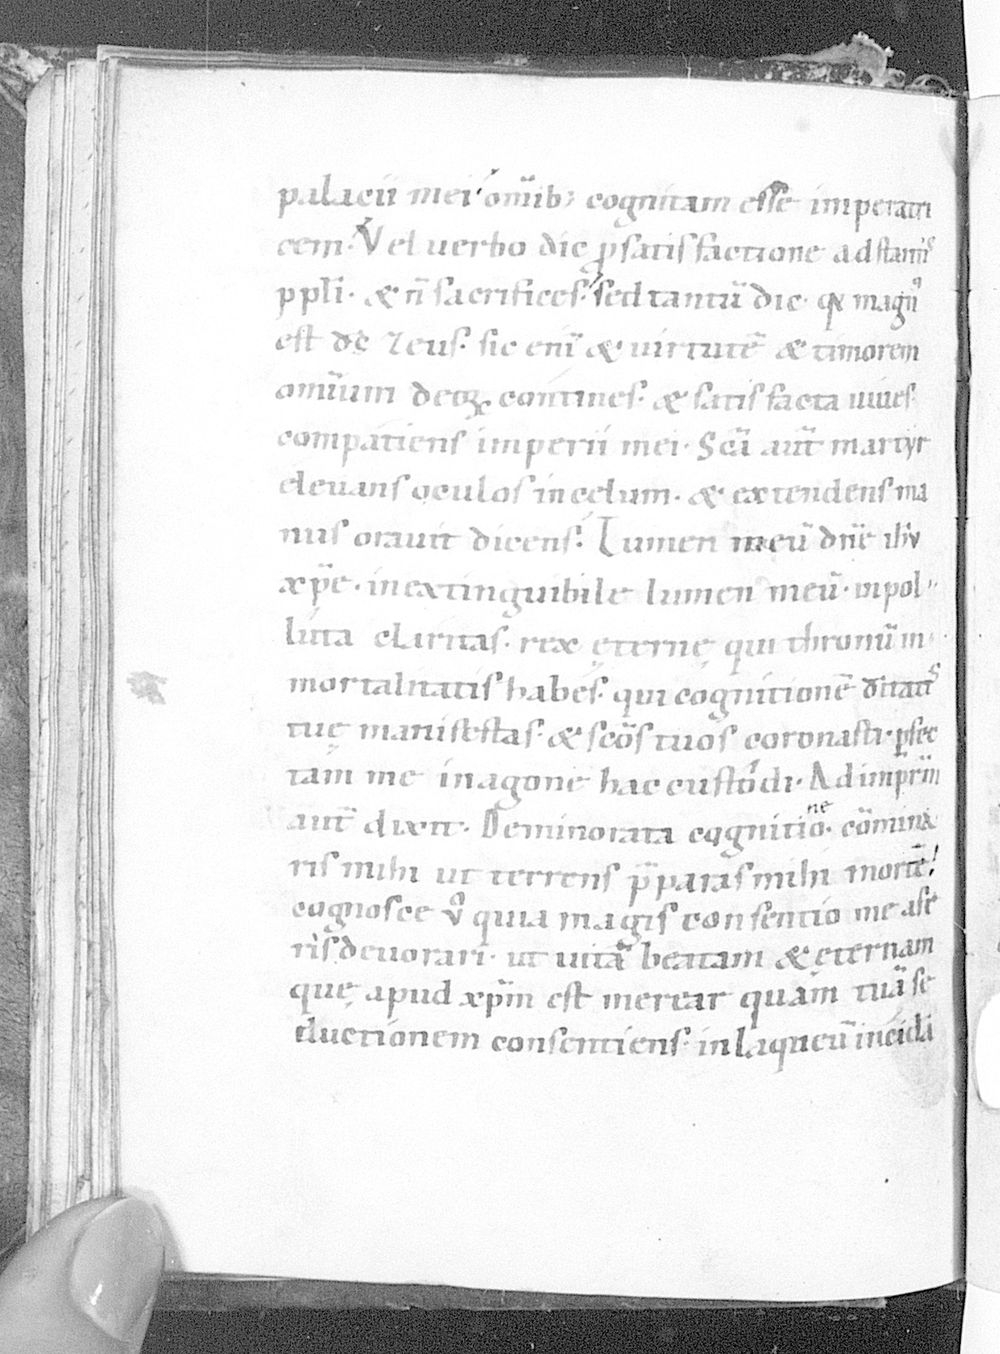 palacii mei omib; cognitam esse imperatri
cem. Vel uerbo dic ꝓ satis factione ad stantiˢ
p pli. & n̄ sacrifices. sed tantū dic. qd magn᷒
est ds̄ Zeus. sic eni & uirtutē & timorem
omīum deoꝝ contines. & satis facta uiues
compatiens imperii mei. Scā aut̄ martyr
eleuans oculos in cęlum. & extendens ma
nus orauit dicens. Lumen meū dn̄e ihu
xp̄e. inextinguibile lumen meū. inpol
luta claritas. rex ęternę qui thronū in
mortalitatis habes. qui cognitionē ditatiˢ
tuę manifestas. & scōs tuos coronasti. ꝑfec
tam me in agone hac custodi. Ad imꝑrēm
aut̄ dixit. Deminorata cognitione. cōmina
ris mihi ut terrens p̄paras mihi mortē!
cognosce ů quia magis consentio me a fe
ris deuorari. ut uitā beatam & eternam
quę apud xp̄m est merear quam tuā se
ductionem consentiens. in laqueū incidā